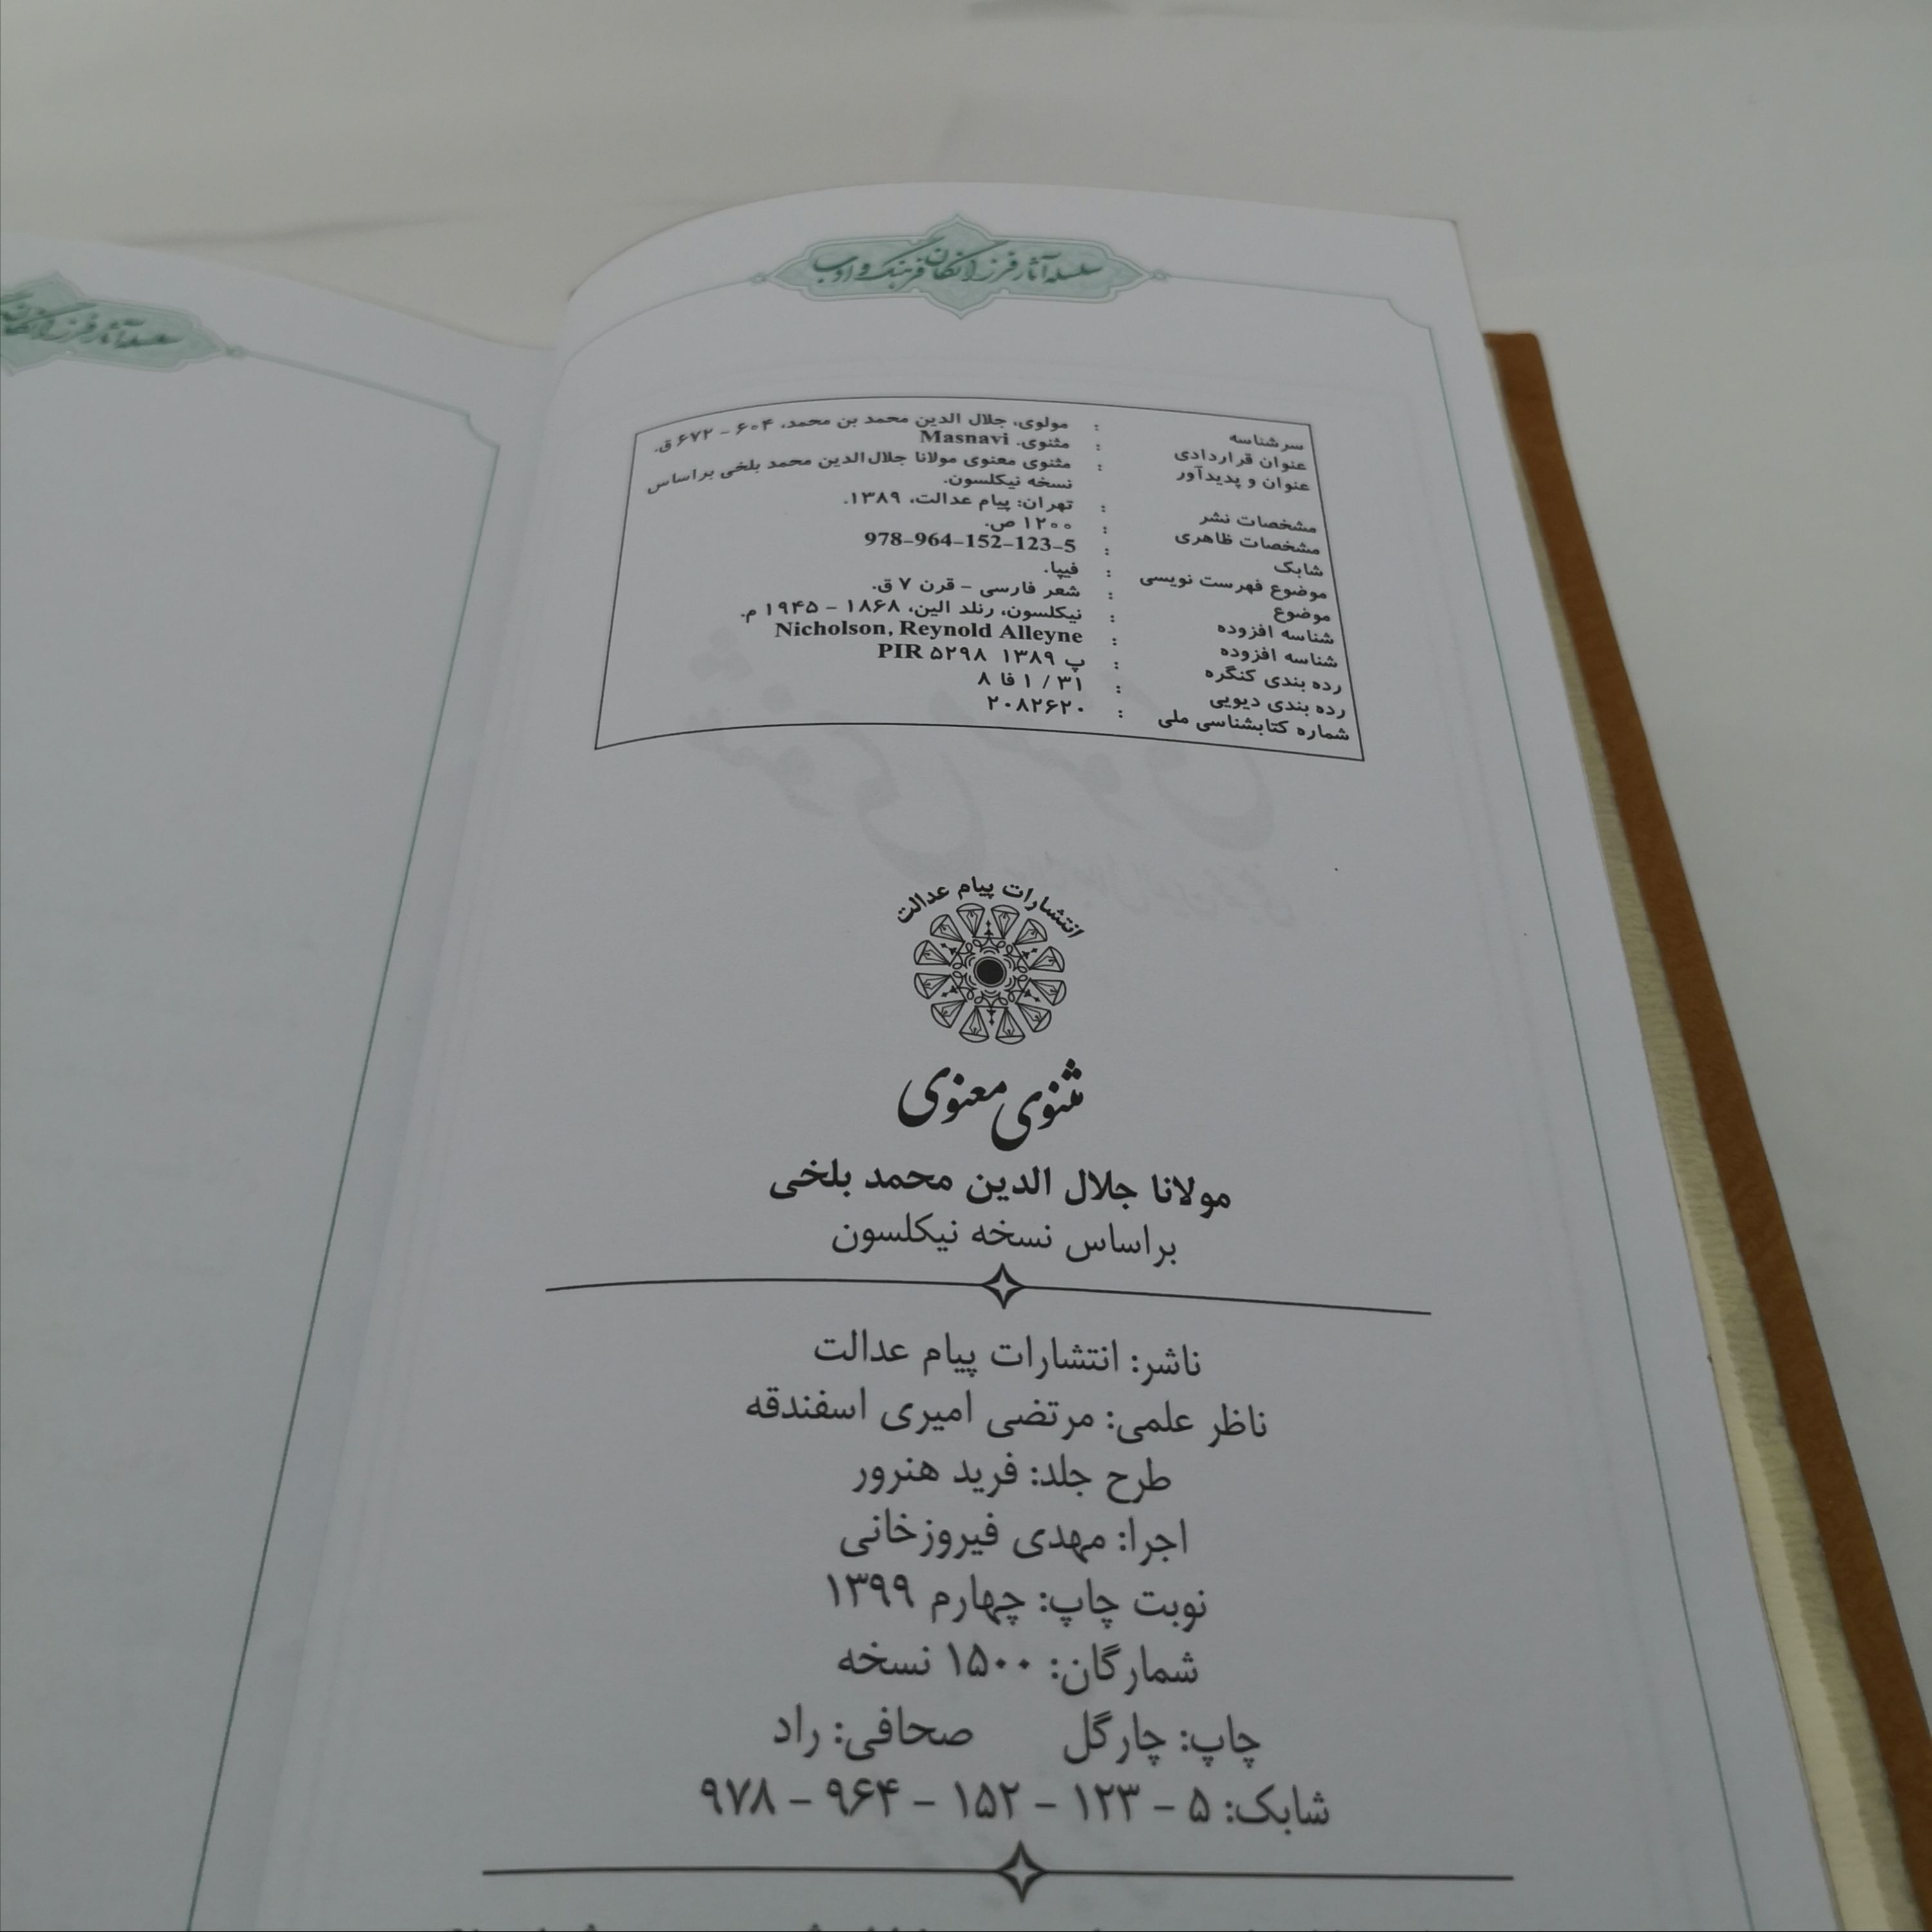 سلسله آثار فرزانگان فرهنگ و ادب
سرشناسه : مولوی، جلال الدین محمد بن محمد، ۶۰۴ – ۶۷۲ ق.
عنوان قراردادی : مثنوی. Masnavi
عنوان و پدیدآور : مثنوی معنوی مولانا جلال‌الدین محمد بلخی براساس
نسخه نیکلسون.
مشخصات نشر : تهران: پیام عدالت، ۱۳۸۹.
مشخصات ظاهری : ۱۲۰۰ ص.
شابک : 978-964-152-123-5
موضوع فهرست نویسی : فیپا.
موضوع : شعر فارسی – قرن ۷ ق.
شناسه افزوده : نیکلسون، رنلد الین، ۱۸۶۸ – ۱۹۴۵ م.
شناسه افزوده : Nicholson, Reynold Alleyne
رده بندی کنگره : PIR ۵۲۹۸ پ ۱۳۸۹
رده بندی دیویی : ۳۱ / ۱ فا ۸
شماره کتابشناسی ملی : ۲۰۸۲۶۲۰
انتشارات پیام عدالت
مثنوی معنوی
مولانا جلال الدین محمد بلخی
براساس نسخه نیکلسون
ناشر: انتشارات پیام عدالت
ناظر علمی: مرتضی امیری اسفندقه
طرح جلد: فرید هنرور
اجرا: مهدی فیروزخانی
نوبت چاپ: چهارم ۱۳۹۹
شمارگان: ۱۵۰۰ نسخه
چاپ: چارگل صحافی: راد
شابک: ۵ – ۱۲۳ – ۱۵۲ – ۹۶۴ – ۹۷۸
سلسله آثار فرزانگان